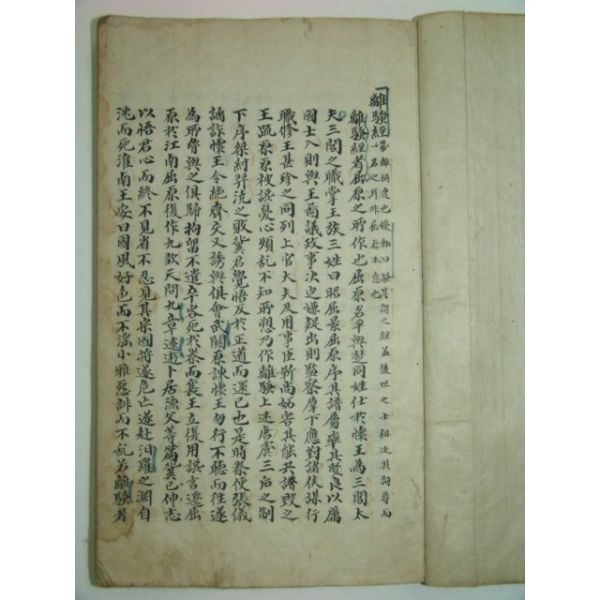 離騷經
離騷經者屈原之所作也屈原名平與楚同姓仕於懷王為三閭大
夫三閭之職掌王族三姓曰昭屈景屈原序其譜屬率其賢良以厲
國士入則與王圖議政事决定嫌疑出則監察羣下應對諸侯謀行
職修王甚珍之同列上官大夫及用事臣靳尚妬害其能共譖毀之
王疏原原被讒憂心煩亂不知所愬乃作離騷上述唐虞三后之制
下序桀紂羿澆之敗冀君覺悟反於正道而還已也是時秦使張儀
譎詐懷王令絶齊交又誘與俱會武關原諫懷王勿行不聽而徃遂
為所脅與之俱歸拘留不遣卒客死於秦而襄王立復用讒言遷屈
原於江南屈原復作九歌天問九章遠遊卜居漁父等篇冀已伸志
以悟君心而終不見省不忍見其宗國將遂危亡遂赴汨羅之淵自
沈而死淮南王安曰國風好色而不滛小雅怨誹而不亂若離騷者